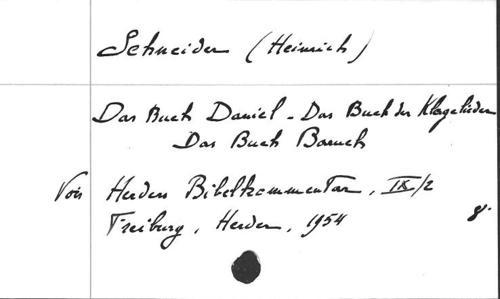 Schneider (Heinrich)
Das Buch Daniel - Das Buch der Klagelieder
Das Buch Baruch
Voir Herders Bibelkommentar, IX/2
Freiburg, Herder, 1954
8°.